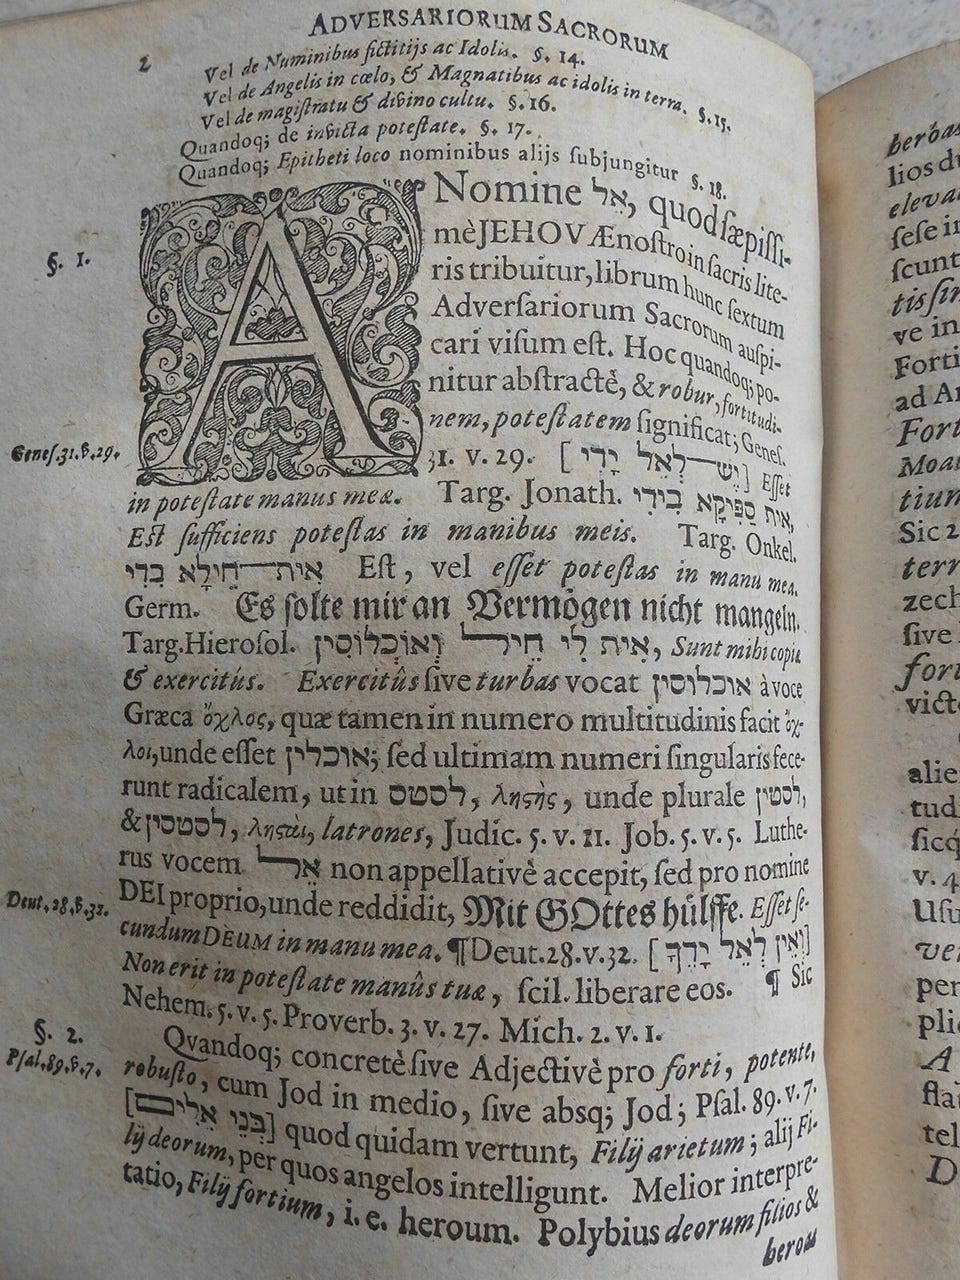 2
ADVERSARIORUM SACRORUM
Vel de Numinibus fictitijs ac Idolis. §. 14.
Vel de Angelis in cœlo, & Magnatibus ac idolis in terra. §. 15.
Vel de magiſtratu & divino cultu. §. 16.
Quandoq; de invicta poteſtate. §. 17.
Quandoq; Epitheti loco nominibus alijs ſubjungitur §. 18.
§. 1.
A Nomine אֵל, quod ſæpiſſi-
mè JEHOVÆ noſtro in ſacris lite-
ris tribuitur, librum hunc ſextum
Adverſariorum Sacrorum auſpi-
cari viſum eſt. Hoc quandoq; po-
nitur abſtractè, & robur, fortitudi-
nem, poteſtatem ſignificat; Geneſ.
Geneſ. 31. v. 29.
31. v. 29. [יֶשׁ־לְאֵל יָדִי] Eſſet
in poteſtate manus meæ. Targ. Jonath. אִית סַפִּיקָא בִּידִי,
Eſt ſufficiens poteſtas in manibus meis. Targ. Onkel.
אִית־חֵילָא בִדִי Eſt, vel eſſet poteſtas in manu mea.
Germ. Es ſolte mir an Vermögen nicht mangeln.
Targ. Hieroſol. אִית לִי חֵיל וְאוֹכְלוֹסִין, Sunt mihi copiæ
& exercitús. Exercitûs ſive turbas vocat אוכלוסין à voce
Græca ὄχλος, quæ tamen in numero multitudinis facit ὄχ-
λοι, unde eſſet אוכלין; ſed ultimam numeri ſingularis fece-
runt radicalem, ut in לסטס, λῃςὴς, unde plurale לסטין,
& לסטסין, λῃςαὶ, latrones, Judic. 5. v. 11. Job. 5. v. 5. Luthe-
rus vocem אֵל non appellativè accepit, ſed pro nomine
Deut. 28. v. 32.
DEI proprio, unde reddidit, Mit GOttes hülffe. Eſſet ſe-
cundum DEUM in manu mea. ¶ Deut. 28. v. 32. [וְאֵין לְאֵל יָדֶךָ]
Non erit in poteſtate manûs tuæ, ſcil. liberare eos. ¶ Sic
Nehem. 5. v. 5. Proverb. 3. v. 27. Mich. 2. v. 1.
§. 2.
Qvandoq; concretè ſive Adjectivè pro forti, potente,
Pſal. 89. v. 7.
robuſto, cum Jod in medio, ſive absq; Jod; Pſal. 89. v. 7.
[בְּנֵי אֵלִים] quod quidam vertunt, Filij arietum; alij Fi-
lij deorum, per quos angelos intelligunt. Melior interpre-
tatio, Filij fortium, i. e. heroum. Polybius deorum filios &
heroas
heroas
lios d
eleva
ſeſe in
ſcunt
tisſin
ve in
Forti
ad A
Fort
Moa
tiun
Sic 2
terr
zech
ſive
fort
victo
alie
tudi
ſicq
v. 4
Uſu
ver
per
plic
A
flat
tel
D